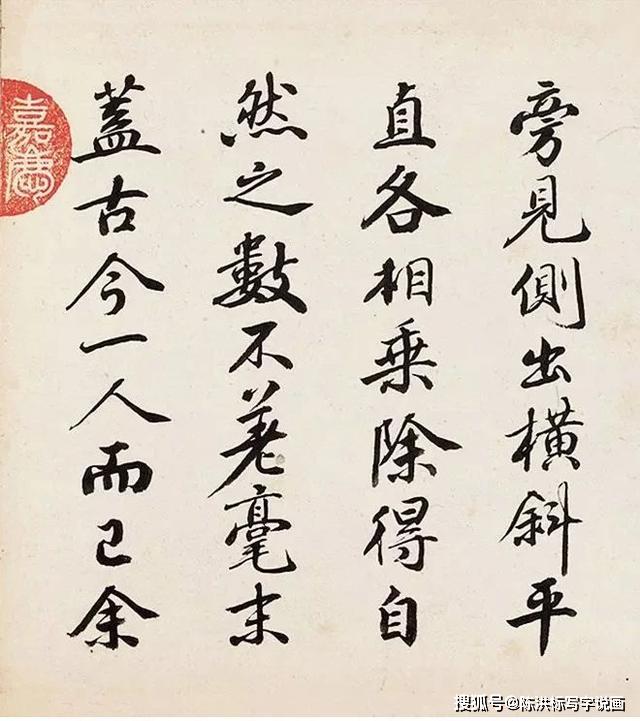 旁見側出橫斜平
直各相乗除得自
然之數不差毫末
蓋古今一人而已余
嘉慶
搜狐号@陈洪标写字说画